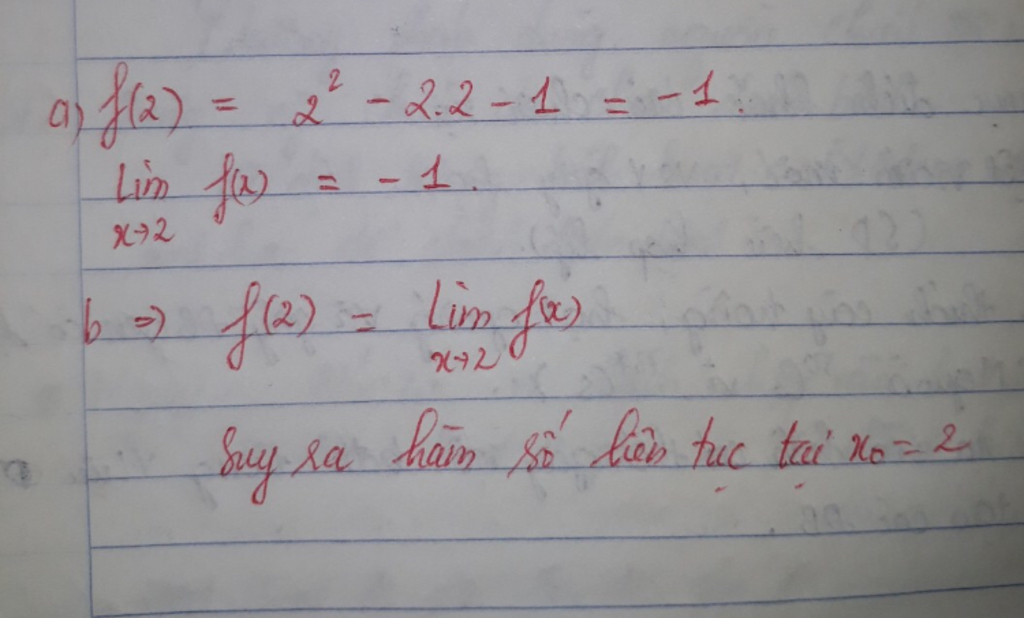 a) f(2) = 2² - 2.2 - 1 = -1.
lim f(x) = -1.
x→2
b ⇒ f(2) = lim f(x)
x→2
Suy ra hàm số liên tục tại x₀ = 2